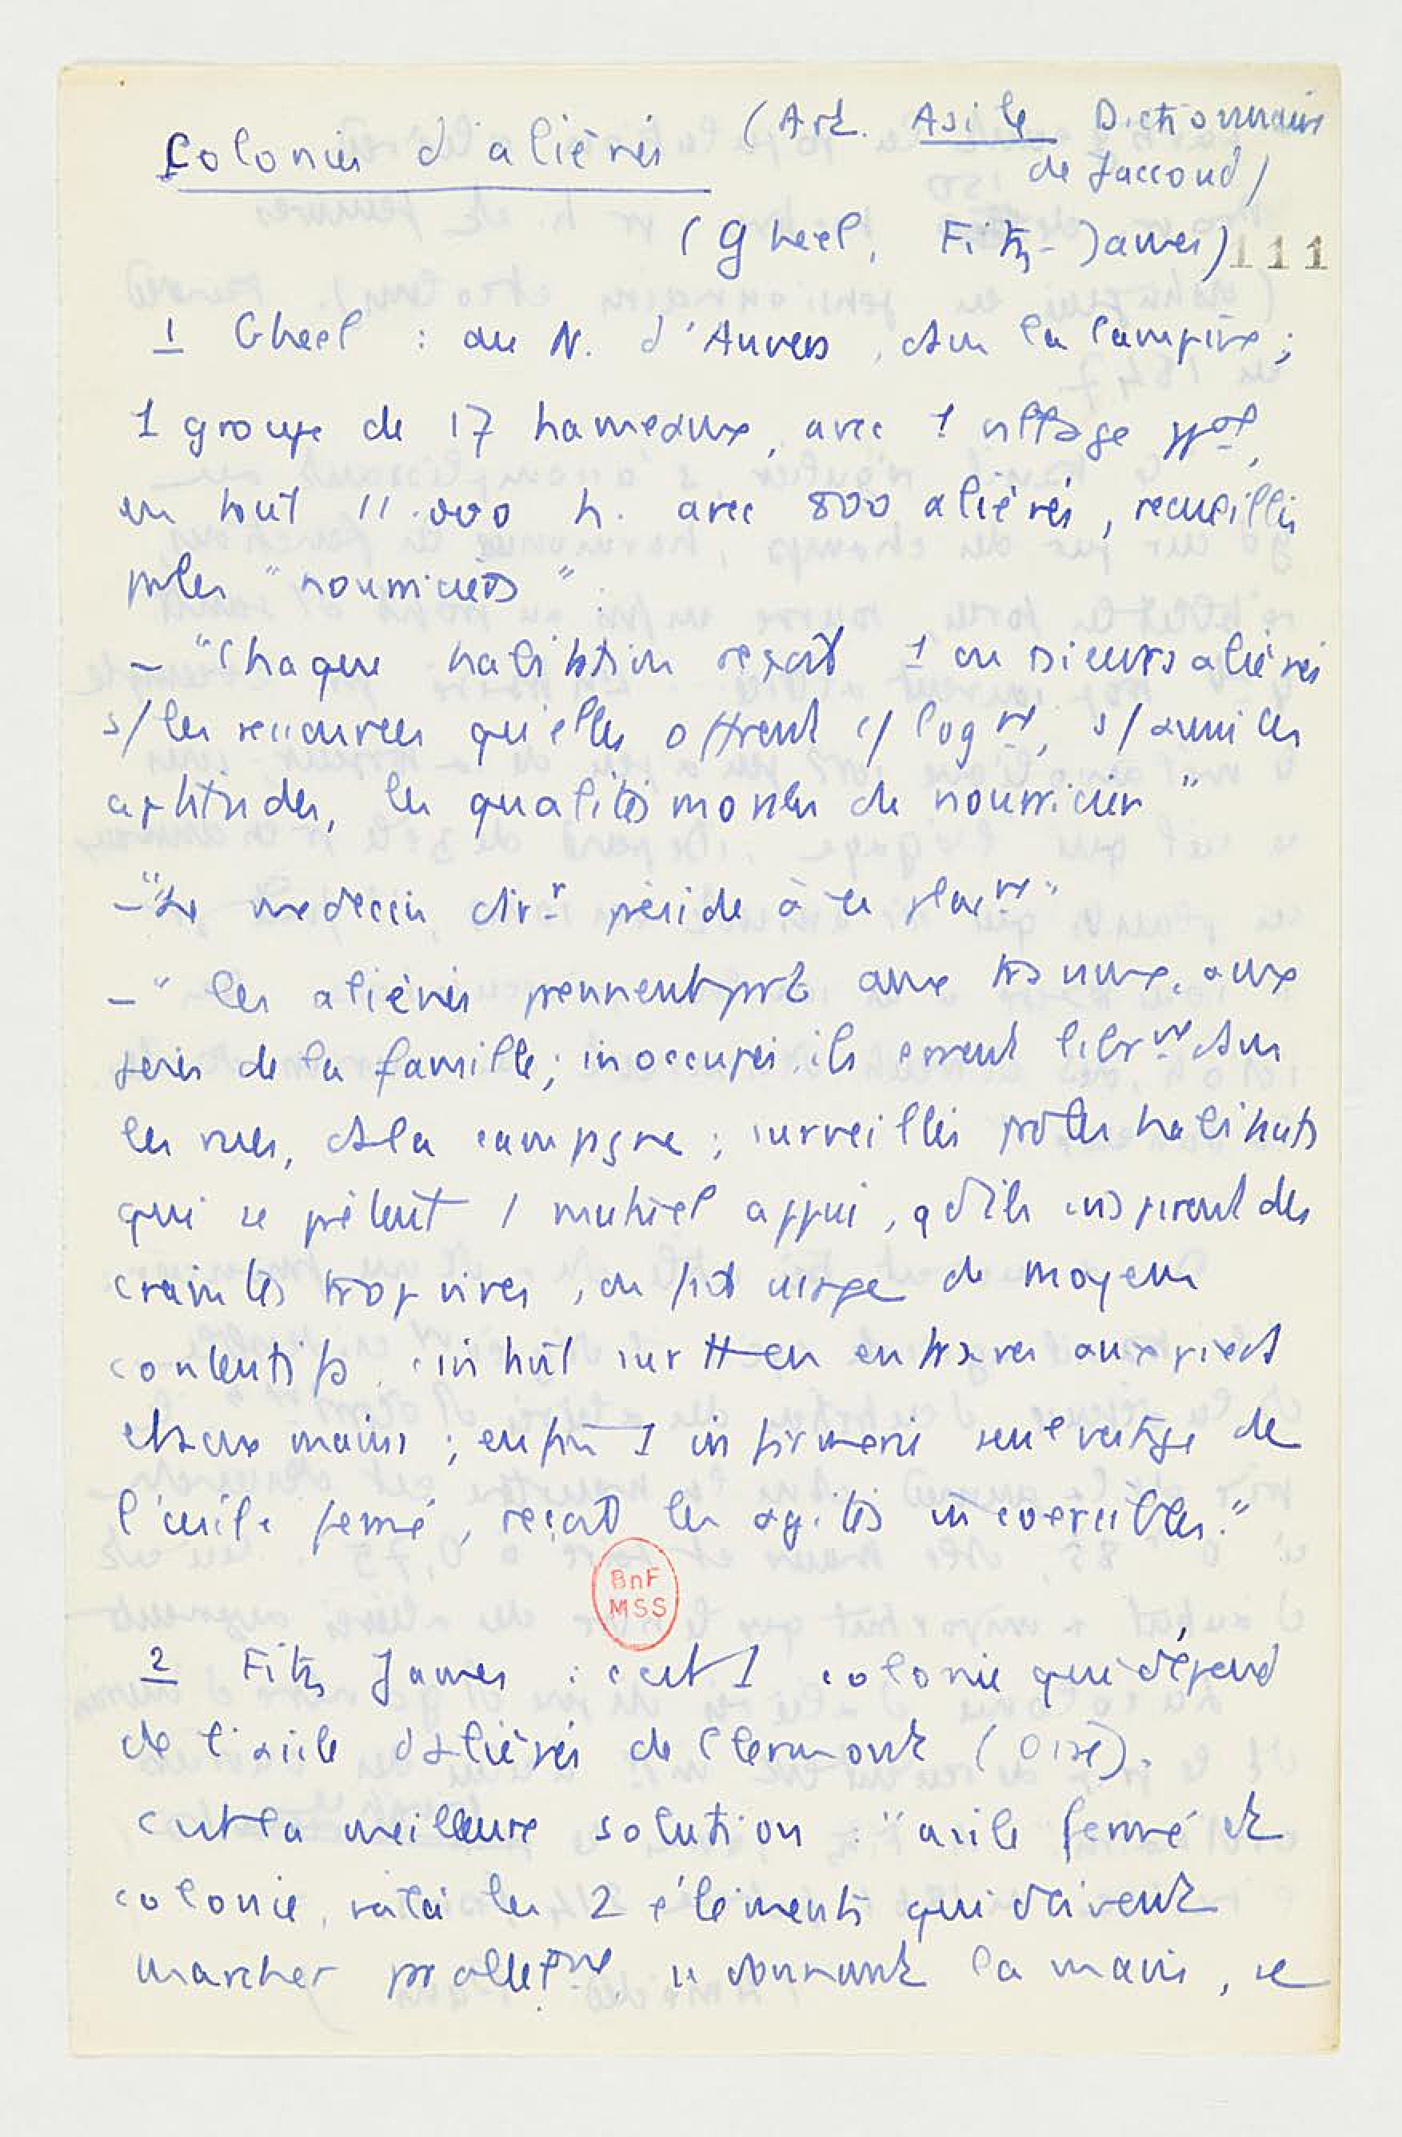 Colonies d'aliénés (Art. Asile Dictionnaire
de Jaccoud)
(Gheel, Fitz-James) 111
1 Gheel : au N. d'Anvers, ds la Campine ;
1 groupe de 17 hameaux, avec 1 village ppal,
en tout 11.000 h. avec 800 aliénés, recueillis
par les "nourriciers".
– "Chaque habitation reçoit 1 ou plsieurs aliénés
s/ les ressources qu'elles offrent c/ logmt, s/ aussi les
aptitudes, les qualités morales du nourricier"
– "Le médecin dirr préside à ce placmt"
– "les aliénés prennent part aux travaux, aux
de la famille ; inoccupés, ils errent librmt ds
les rues, ds la campagne ; surveillés par les habitants
qui se prêtent 1 mutuel appui, qd ils inspirent des
craintes trop vives, on fait usage de moyens
contentifs, consistant surtt en entraves aux pieds
et aux mains ; enfin 1 infirmerie seul vestige de
l'asile fermé, reçoit les agités incoercibles."
BnF
MSS
2 Fitz James : c'est 1 colonie qui dépend
de l'asile d'aliénés de Clermont (Oise).
C'est la meilleure solution : "asile fermé et
colonie, voilà les 2 éléments qui doivent
marcher parallèlmt, se donnant la main, se